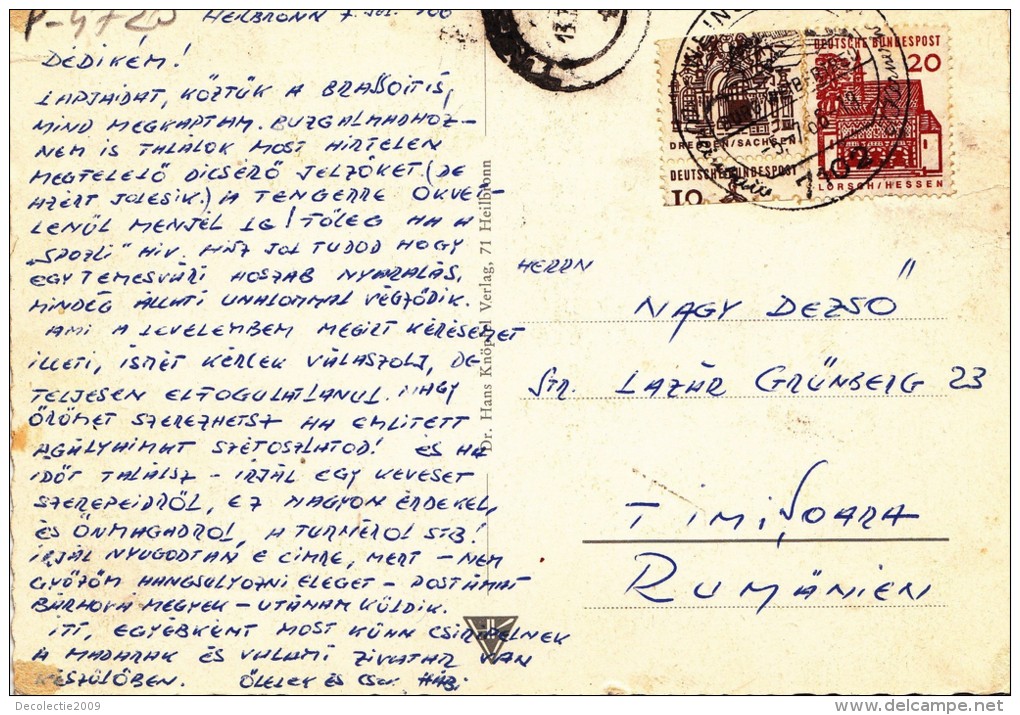 P-4720
HEILBRONN 7. JUL. '66
DÉDIKÉM!
LAPJAIDAT, KÖZTÜK A BRASSOIT IS,
MIND MEGKAPTAM. BUZGALMADHOZ-
NEM IS TALÁLOK MOST HIRTELEN
MEGFELELŐ DICSÉRŐ JELZŐKET. (DE
AZÉRT JÓLESIK.) A TENGERRE OKVET-
LENÜL MENJÉL LE! FŐLEG HA A
„SPOZLI" HIV. HISZ JOL TUDOD HOGY
EGY TEMESVÁRI HOSZAB NYARALÁS,
MINDÉG ÁLLATI UNALOMMAL VÉGZŐDIK.
AMI A LEVELEMBEM MEGIRT KÉRÉSEMET
ILLETI, ISMÉT KÉRLEK VÁLASZOLJ, DE
TELJESEN ELFOGULATLANUL. NAGY
ÖRÖMET SZEREZHETSZ HA EMLITETT
AGÁLYAIMAT SZÉTOSZLATOD! ÉS HA
IDŐT TALÁLSZ - IRJÁL EGY KEVESET
SZEREPEIDRŐL, EZ NAGYON ÉRDEKEL,
ÉS ÖNMAGADROL, A TURNÉROL STB!
IRJÁL NYUGODTAN E CIMRE, MERT - NEM
GYŐZÖM HANGSULYOZNI ELEGET - POSTÁMAT
BÁRHOVÁ MEGYEK - UTÁNAM KÜLDIK.
ITT, EGYÉBKÉNT MOST KÜNN CSIRIPELNEK
A MADARAK ÉS VALAMI ZIVATAR VAN
KÉSZÜLŐBEN. ÖLELEK ÉS
Dr. Hans Knöppel Verlag, 71 Heilbronn
DRESDEN/SACHSEN
DEUTSCHE BUNDESPOST
10
DEUTSCHE BUNDESPOST
20
LORSCH/HESSEN
7102
HERRN
NAGY DEZSŐ
STR. LAZÁR GRÜNBERG 23
TIMIŞOARA
RUMÄNIEN
Decolectie2009
delcampe.net